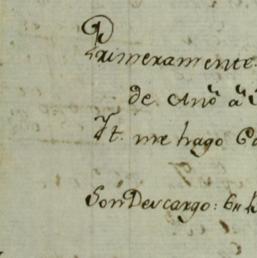 Primeramente
de Año a
It. me hago Ca
Son Descargo: En